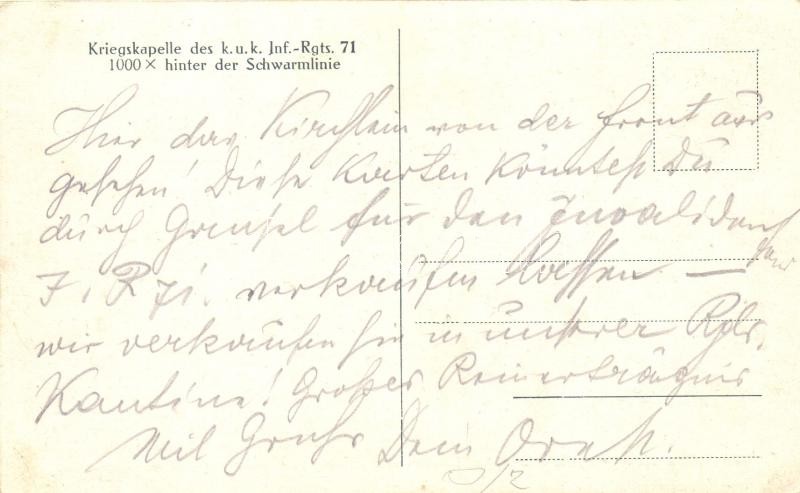 Kriegskapelle des k.u.k. Inf.-Rgts. 71
1000 × hinter der Schwarmlinie
Hier das Kirchlein von der Front aus
gesehen! Diese Karten könntest Du
durch für den Invaliden
fond
I. R. 71. verkaufen lassen —
wir verkaufen sie in unserer Rgts.
Kantine! Großes Reinerträgnis
Mit Gruß Dein